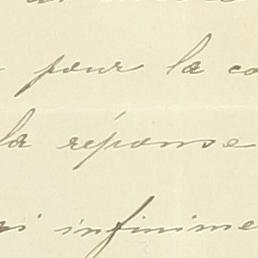 pour la co
la réponse
infinime